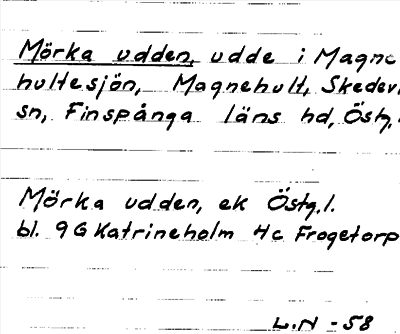 Mörka udden, udde i Magne
hultesjön, Magnehult, Skedevi
sn, Finspånga läns hd, Östg.
Mörka udden, ek Östg.l.
bl. 9G Katrineholm 4c Frogetorp
L.N -58